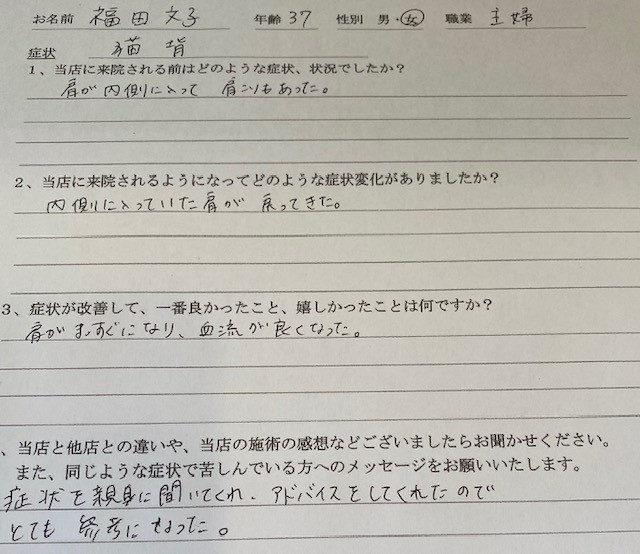 お名前 福田文子 年齢 37 性別 男・女 職業 主婦
症状 猫背
1、当店に来院される前はどのような症状、状況でしたか？
肩が内側に入って 肩こりもあった。
2、当店に来院されるようになってどのような症状変化がありましたか？
内側に入っていた肩が 戻ってきた。
3、症状が改善して、一番良かったこと、嬉しかったことは何ですか？
肩がまっすぐになり、血流が良くなった。
、当店と他店との違いや、当店の施術の感想などございましたらお聞かせください。
また、同じような症状で苦しんでいる方へのメッセージをお願いいたします。
症状を親身に聞いてくれ、アドバイスをしてくれたので
とても 参考になった。